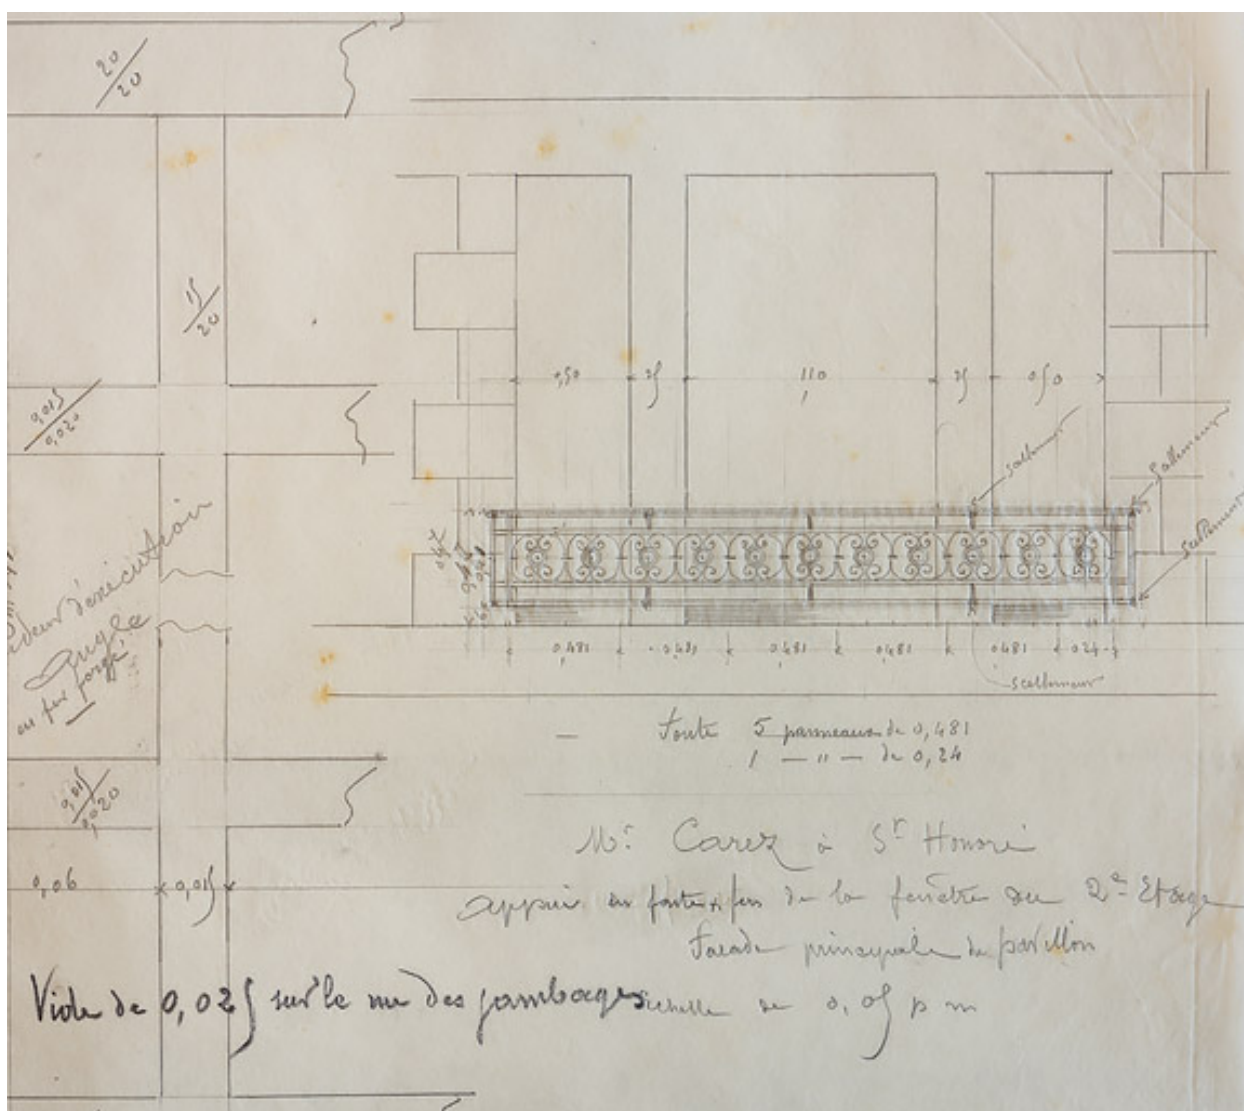 20/20
15/20
0,015/0,020
d'exécution
Angle
en fer forgé
0,50 25 110 25 050
Scellement
Scellement
Scellement
0,481 0,481 0,481 0,481 0,481 024
scellement
— Fonte 5 panneaux de 0,481
1 — " — de 0,24
0,015/0,020
0,06 0,015
Mr. Carez à St Honoré
appui en fonte & fers de la fenêtre du 2e Etage
Facade principale du pavillon
Vide de 0,025 sur le nu des jambages
échelle de 0,05 p m